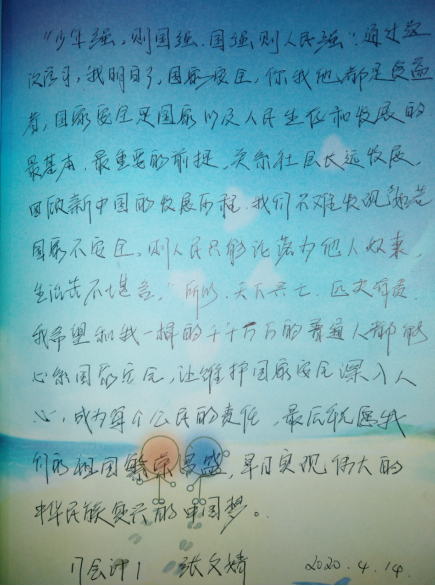 “少年强，则国强，国强则人民强”。通过这
次学习，我明白了，国家安全，你我他，都是受益
者，国家安全是国家以及人民生存和发展的
最基本，最重要的前提，关系社会长远发展，
回顾新中国的发展历程，我们不难发现，“若
国家不安全，则人民只能沦落为他人奴隶，
生活苦不堪言，”所以，天下兴亡，匹夫有责，
我希望和我一样的千千万万的普通人都能
心系国家安全，让维护国家安全深入人
心，成为每个公民的责任，最后祝愿我
们的祖国繁荣昌盛，早日实现伟大的
中华民族复兴的中国梦。
17会计1 张文婧 2020.4.14.